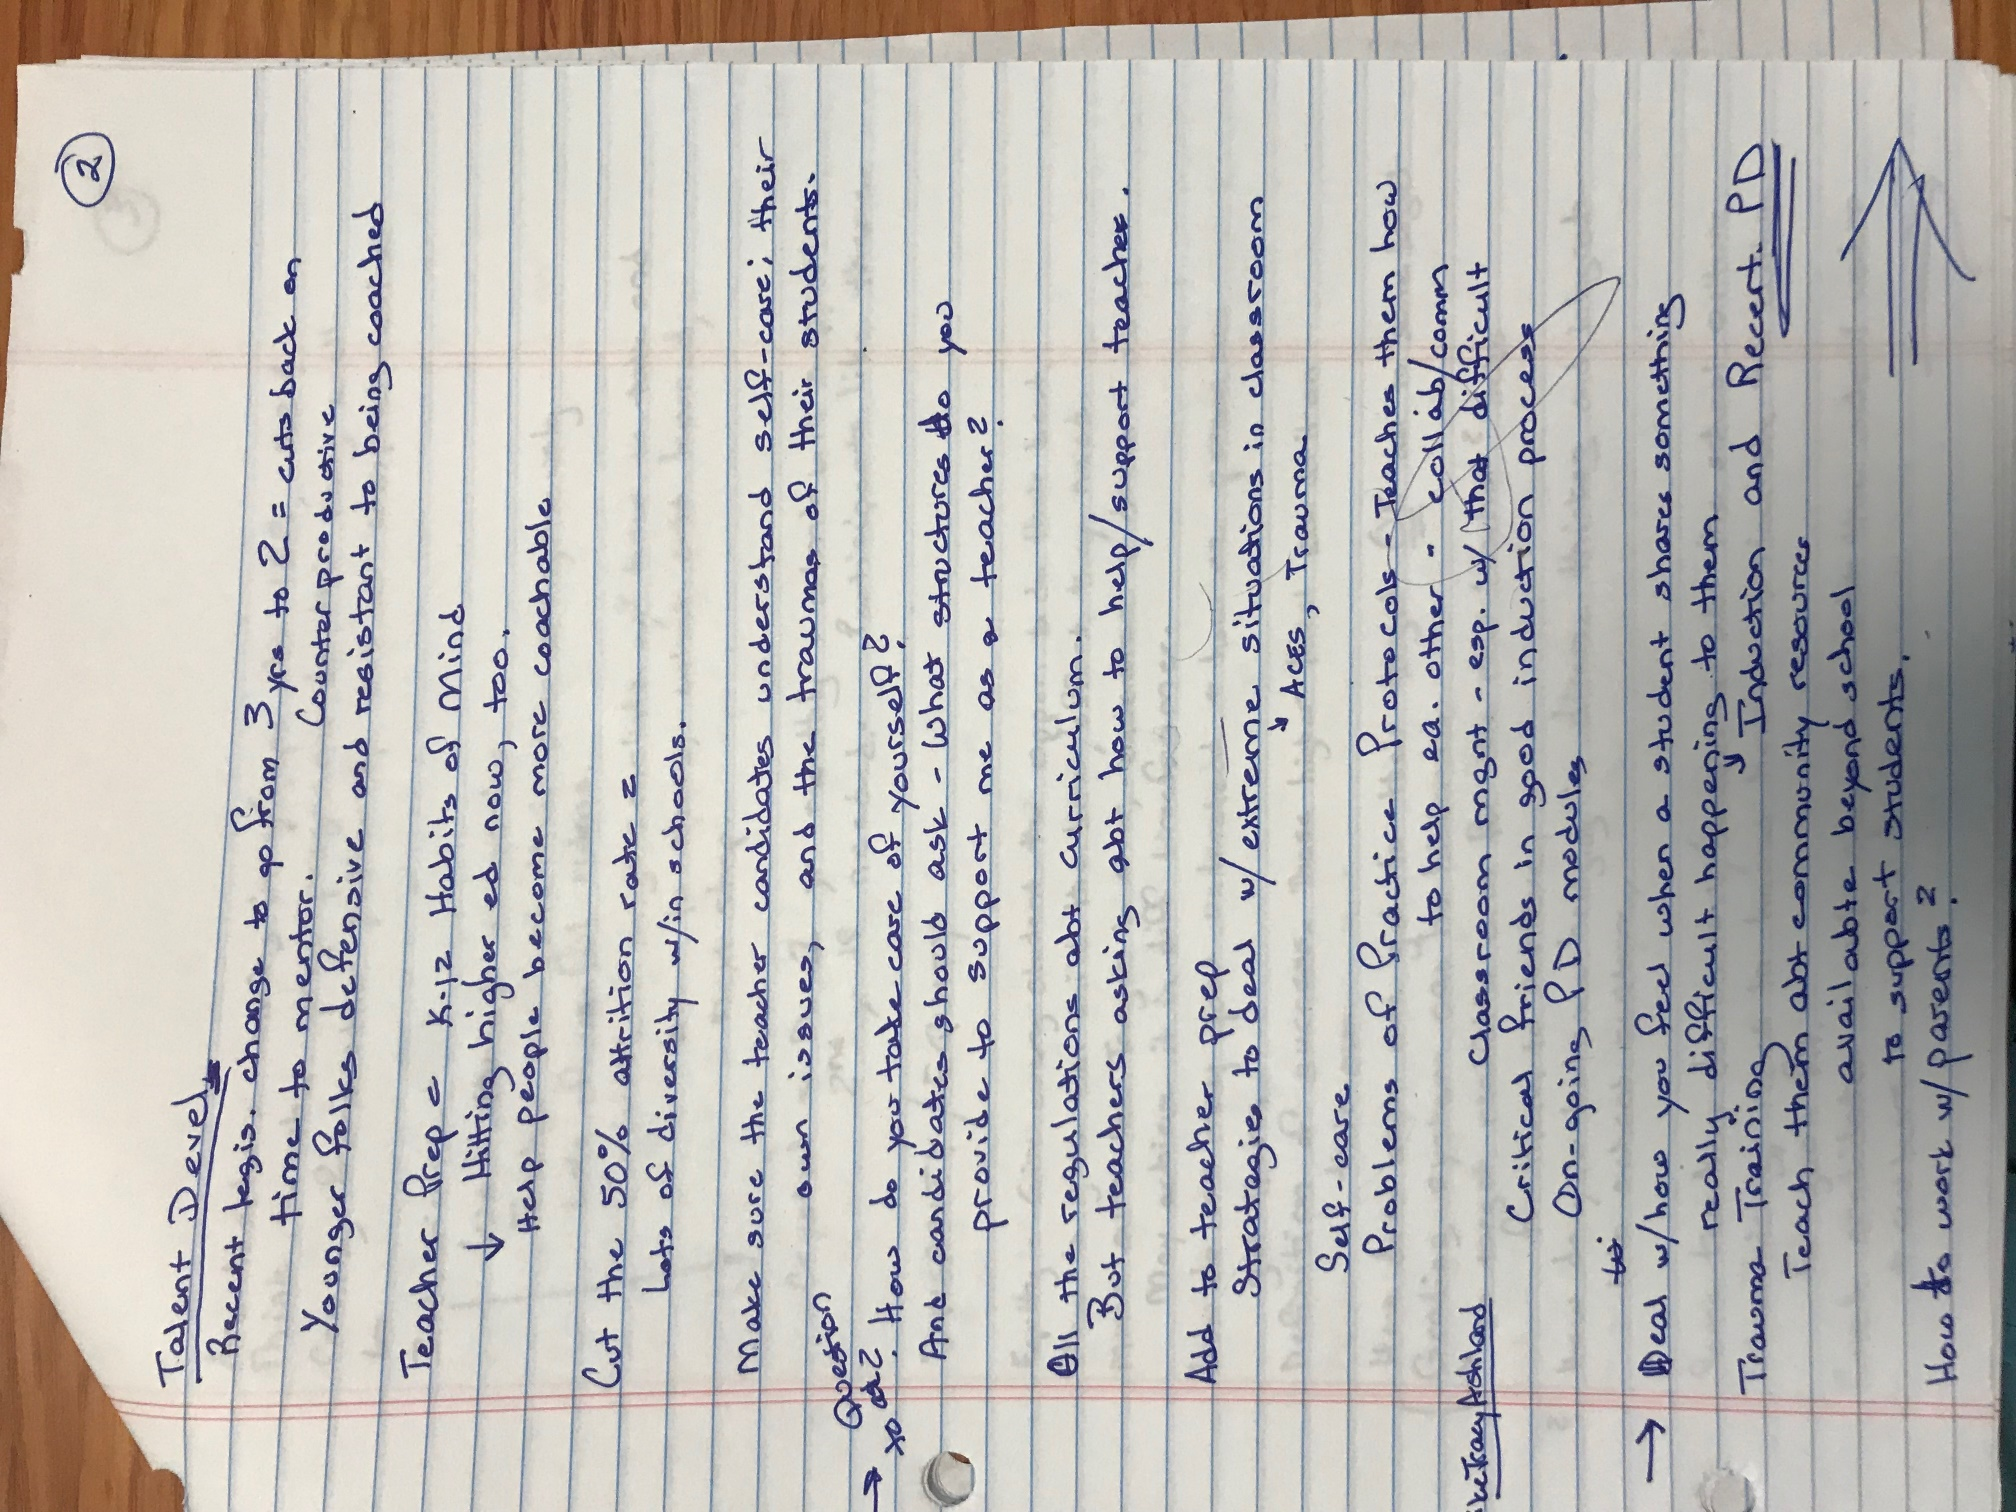 2
Talent Devel.
Recent legis. change to go from 3 yrs to 2 = cuts back on
time to mentor. Counterproductive
Younger folks defensive and resistant to being coached
Teacher Prep = K-12 Habits of Mind
↓ Hitting higher ed now, too.
Help people become more coachable
Cut the 50% attrition rate =
Lots of diversity w/in schools.
Make sure the teacher candidates understand self-care; their
own issues, and the traumas of their students.
Question
→ to How do you take care of yourself?
And candidates should ask - What structures do you
provide to support me as a teacher?
All the regulations abt curriculum.
But teachers asking abt how to help/support teachers.
Add to teacher prep
Strategies to deal w/ extreme situations in classroom
↓ ACES, Trauma
Self-care
Problems of Practice Protocols - Teaches them how
to help ea. other - collab/comm
Classroom mgnt - esp. w/ that difficult
Tracy Ashland
Critical friends in good induction process
On-going PD modules
→ Deal w/how you feel when a student shares something
really difficult happening to them
Trauma Training ↓ Induction and Recert. PD
Teach them abt community resources
available beyond school
to support students.
How to work w/ parents?